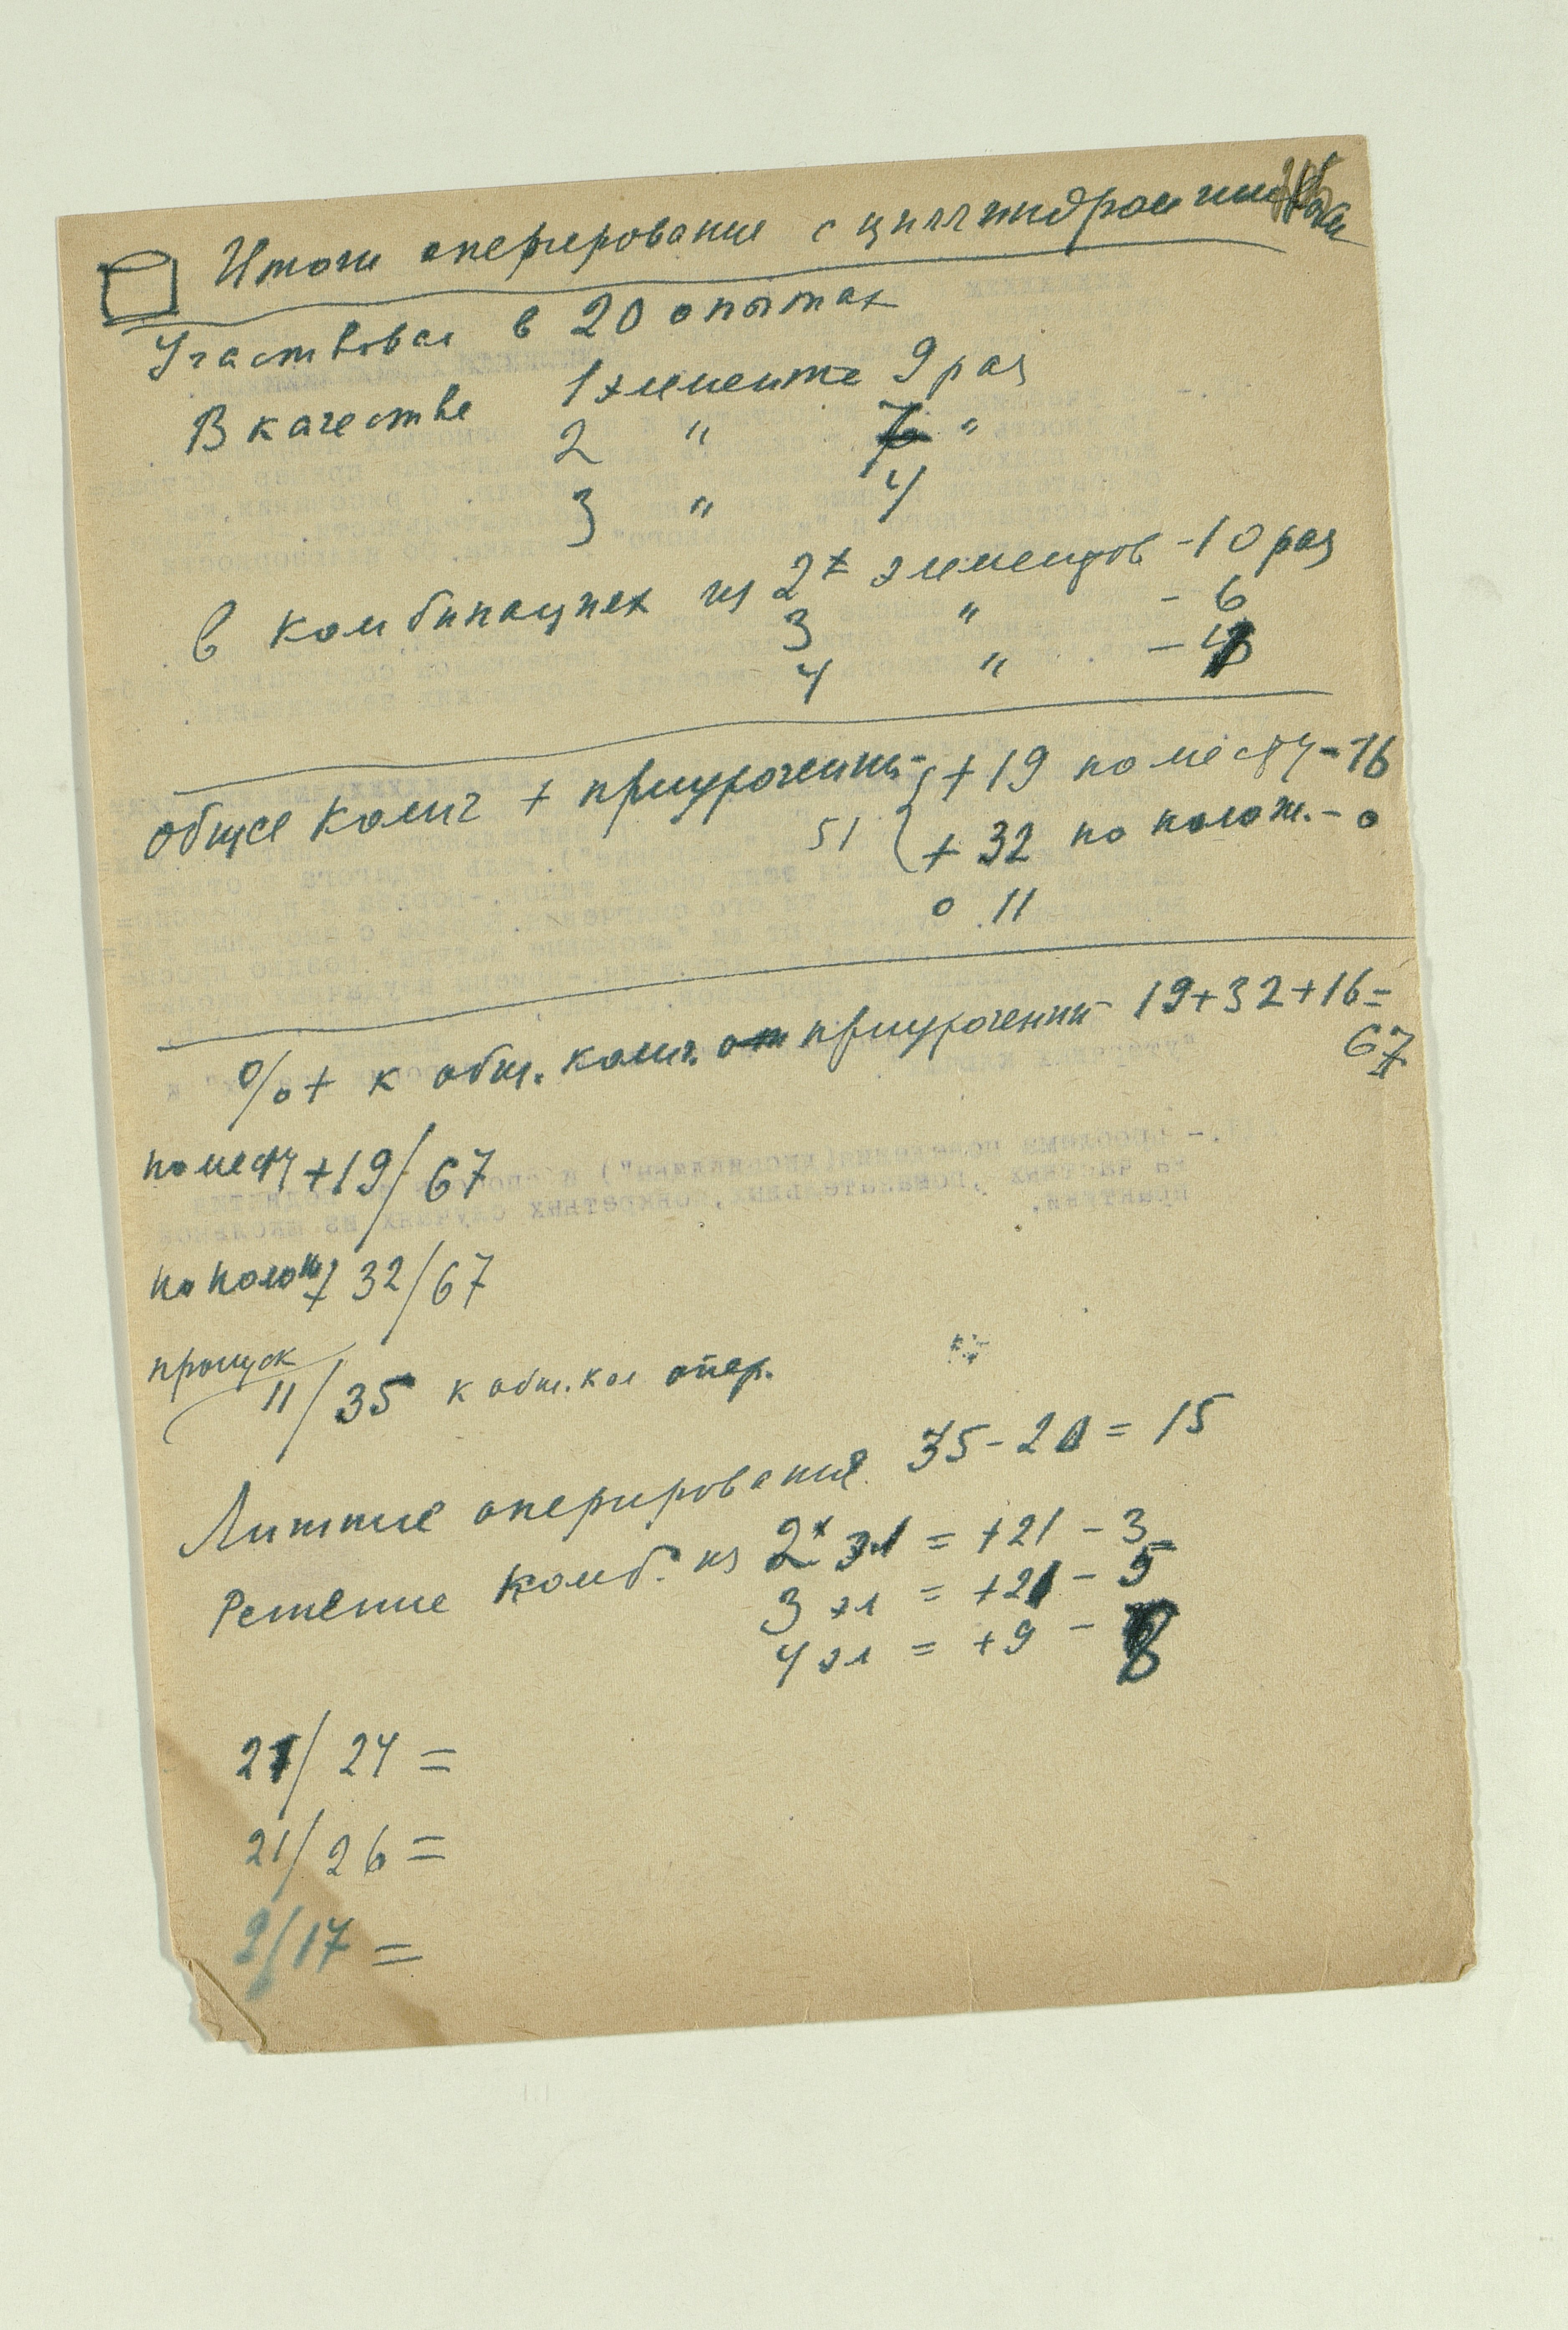 Итоги оперирования с цилиндрами
Участвовал в 20 опытах
В качестве 1 элемента 9 раз
2 " 7 "
3 " 4
В комбинациях из 2х элементов - 10 раз
3 " - 6
4 " - 4
общее колич + приурочений - + 19 по месту - 16
51 + 32 по полож. - 0
0 11
% + к общ. колич. приурочений 19+32+16=
67
по месту + 19/67
по полож + 32/67
пропуск
11/35 к общ. кол опер.
Лишние оперирования. 35-20 = 15
Решение комб. из 2х эл = +21 - 3
3 эл = +21 - 5
4 эл = +9 - 8
21/24 =
21/26 =
9/17 =